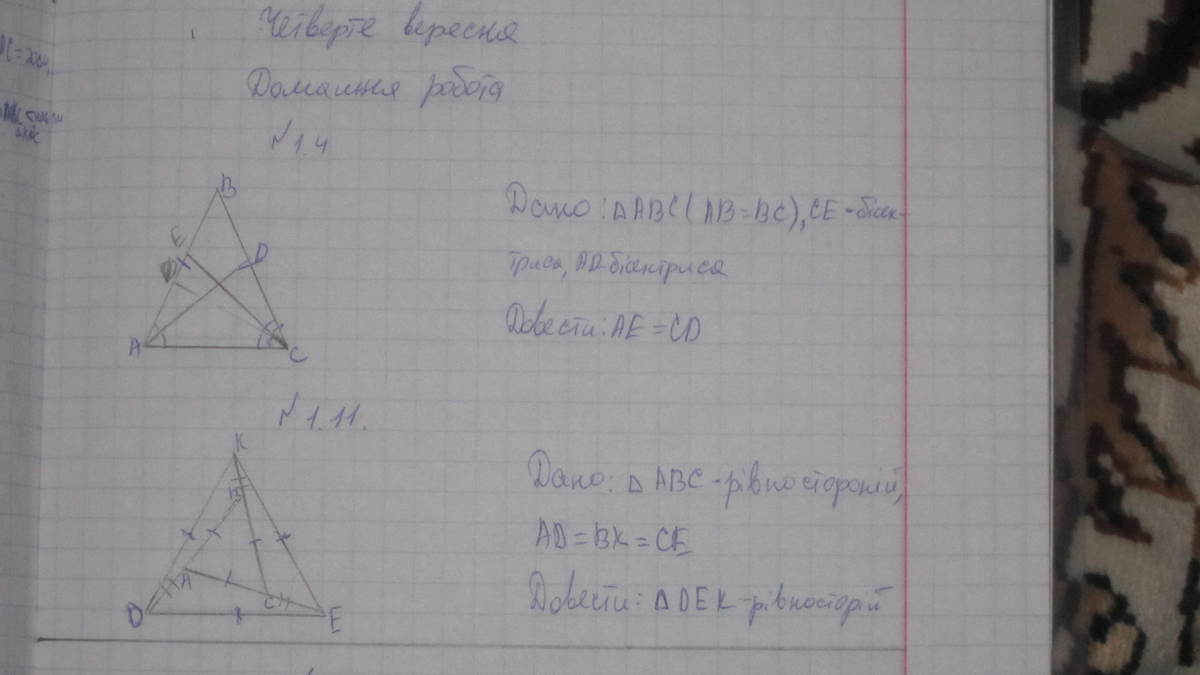 Четверте вересня
Домашня робота
№1.4
B
E
D
A
C
Дано: ΔABC (AB=BC), CE-бісек-
триса, AD-бісектриса
Довести: AE=CD
№1.11.
K
B
A
C
D
E
Дано: Δ ABC-рівностороній,
AD=BK=CE
Довести: ΔDEK-рівносторій